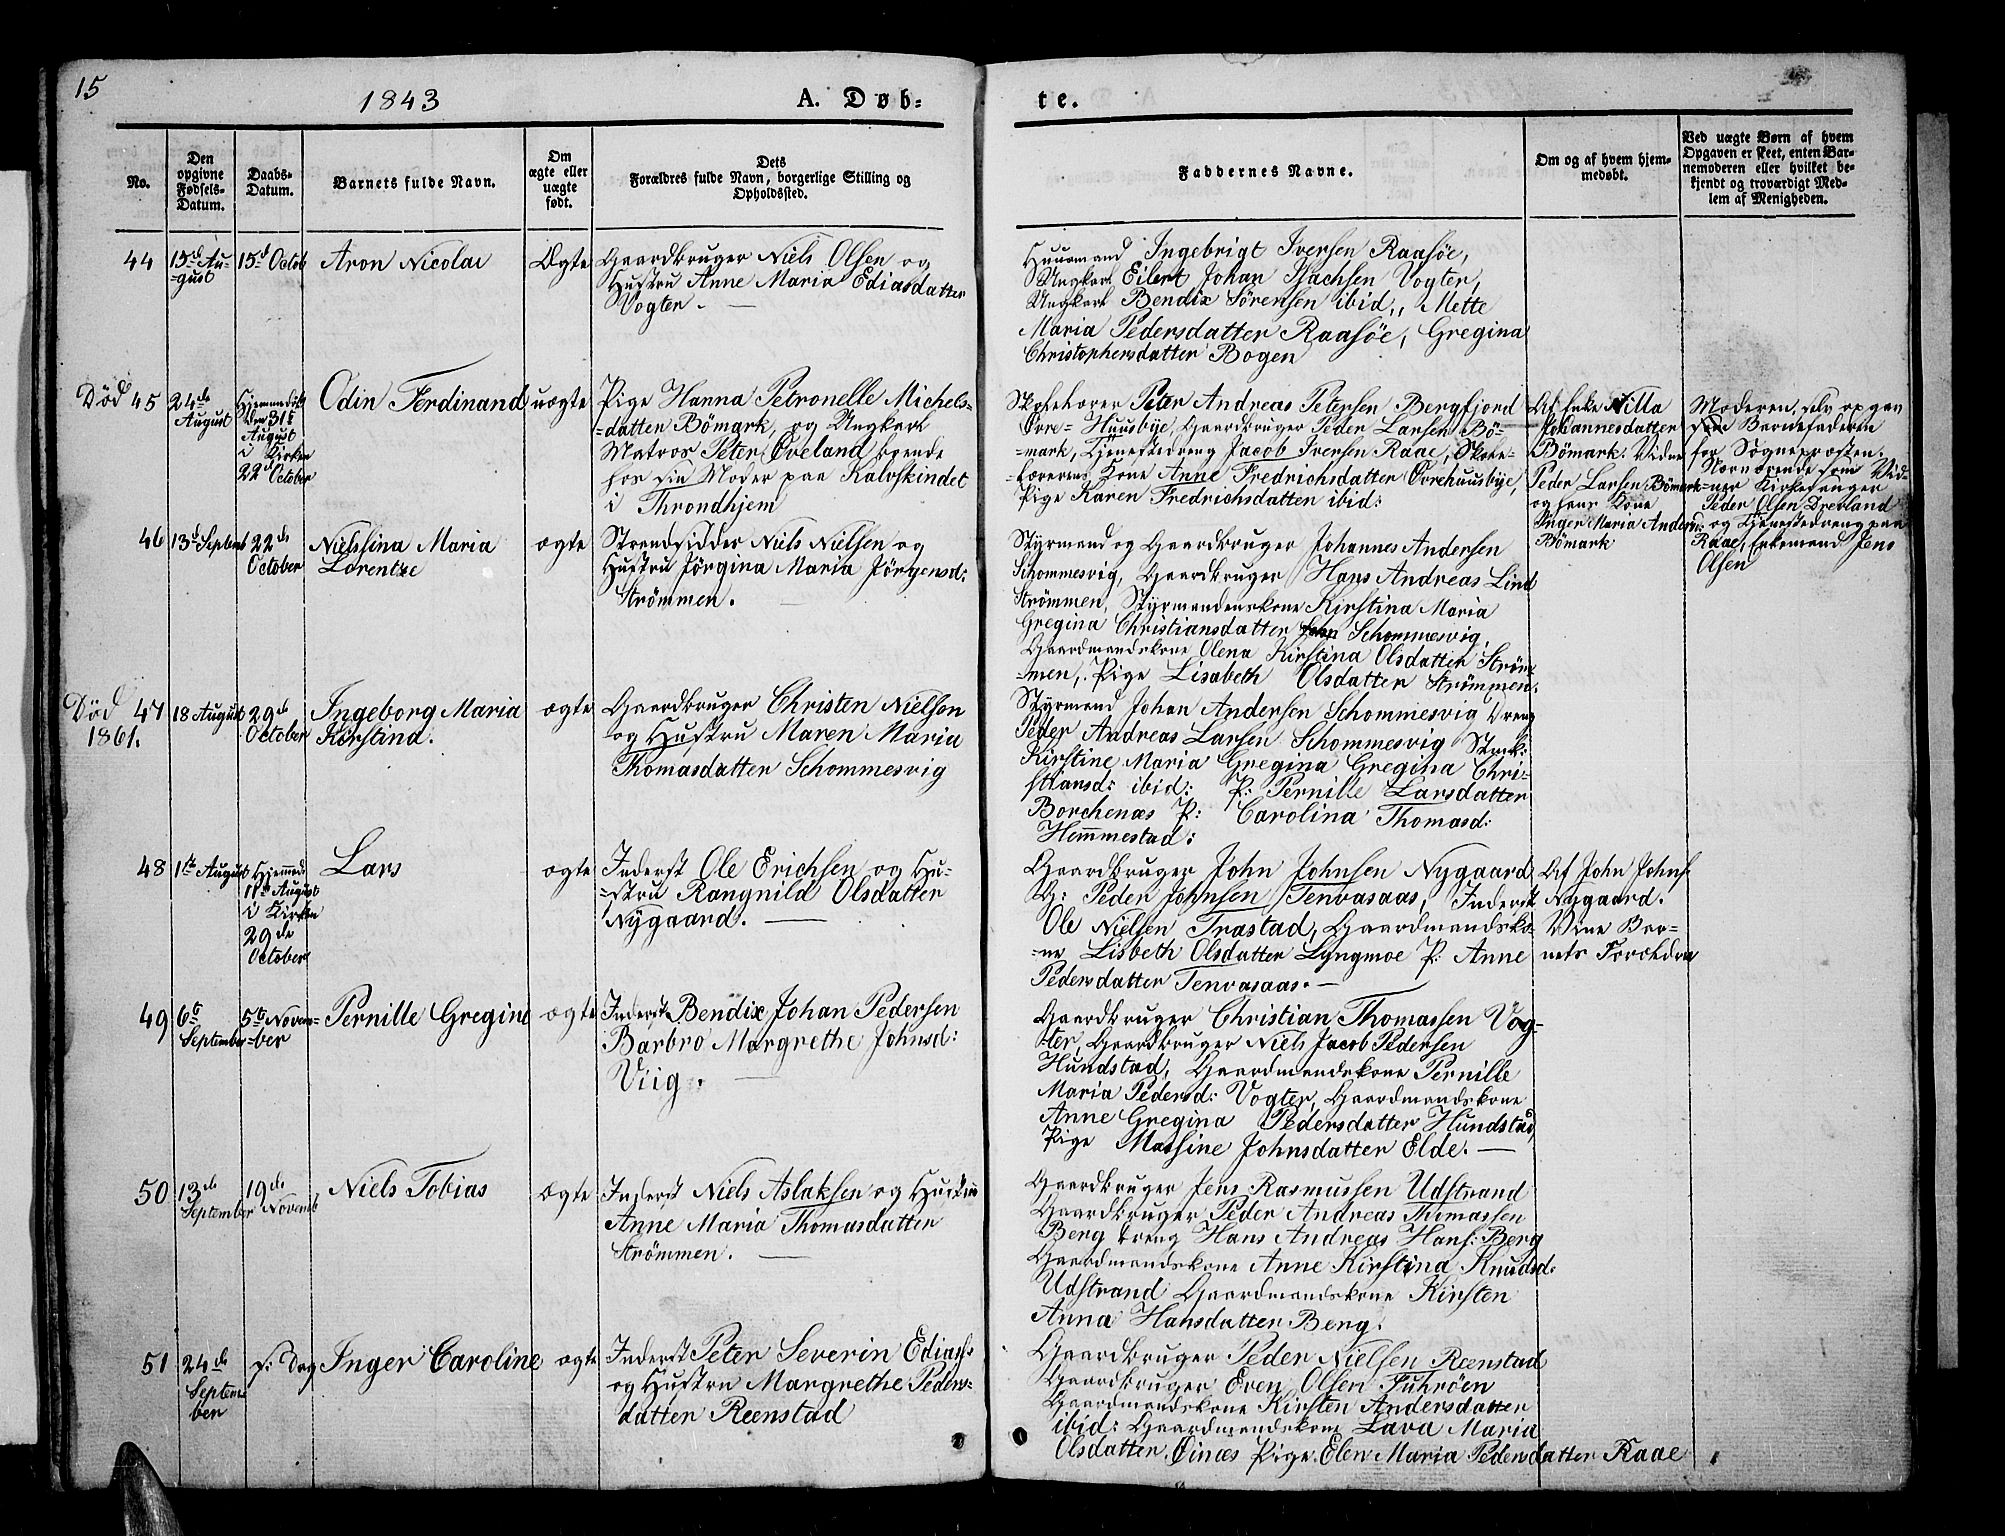 15
1843
A. Døb-
te.
No.
Den
opgivne
Fødsels-
Datum.
Daabs-
Datum.
Barnets fulde Navn.
Om
ægte eller
uægte
født.
Dets
Forældres fulde Navn, borgerlige Stilling og
Opholdssted.
Faddernes Navne.
Om og af hvem hjem-
medøbt.
Ved uægte Børn af hvem
Opgaven er skeet, enten Bar-
nemoderen eller hvilket be-
kjendt og troværdigt Med-
lem af Menigheden.
44
15de Au-
=gust
15de Octob
Aron Nicolai
Ægte
Gaardbruger Niels Olsen og
Hustru Anne Maria Ediasdatter
Vogter.
Huusmand Ingebrigt Iversen Raasöe,
Ungkarl Eilert Johan Isachsen Vogter,
Ungkarl Bendix Sörensen ibid., Mette
Maria Pedersdatter Raasöe, Gregina
Christophersdatter Bogen
Död 45
24de
August
Hjemmedöbt
Den 31te
August
i Kirken
22de October
Odin Ferdinand
uægte
Pige Hanna Petronelle Michels-
=datter Bömark, og Ungkarl
Matros Peter Öveland boende
hos sin Moder paa Kalvskindet
i Throndhjem
Skoleholder Peter Andreas Petersen Bergfjord
Övre= Huusbye, Gaardbruger Peder Larsen Bö-
=mark, Tjenestedreng Jacob Iversen Raae, Skole-
=lærerens Kone Anne Fredrichsdatter Övrehuusbye,
Pige Karen Fredrichsdatter ibid:
Af Enke Nilla
Johannesdatter
Bömark: Vidne
Peder Larsen Bömark
og hans Kone
Inger Maria Andersd:
Bömark
Moderen, selv opgav
som Barnefaderen
for Sognepræsten.
Nærværende som Vid-
=ner Kirkesanger
Peder Olsen Drevland
og Tjenestedreng paa
Raae, Enkemand Jens
Olsen
46
13de Septemb
22de
October
Nielssina Maria
Lorentze
ægte
Strandsidder Niels Nielsen og
Hustru Jörgina Maria Jörgensd:
Strömmen.
Styrmand og Gaardbruger Johannes Andersen
Schommesvig, Gaardbruger Hans Andreas Lind
Strömmen, Styrmandenskone Kirstina Maria
Gregina Christiansdatter Schommesvig,
Gaardmandskone Olena Kirstina Olsdatter Ström
=men, Pige Lisabeth Olsdatter Strömmen.
Död 47
1861.
18 August
29de
October
Ingeborg Maria
Kirstina.
ægte
Gaardbruger Christen Nielsen
og Hustru Maren Maria
Thomasdatter Schommesvig
Styrmand Johan Andersen Schommesvig Dreng
Peder Andreas Larsen Schommesvig Styrk:
Kirstine Maria Gregina Gregina Chri-
stiansd: ibid: P: Pernille Larsdatter
Borchenæs P: Carolina Thomasd:
Hemmestad:
48
1ste August
Hjemmed:
11te August
i Kirken
29de
October
Lars
ægte
Inderst Ole Erichsen og Hu-
=stru Rangnild Olsdatter
Nygaard.
Gaardbruger John Johnsen Nygaard
G: Peder Johnsen Tenvasaas, Inderst
Ole Nielsen Trastad, Gaardmandsko-
=ne Lisbeth Olsdatter Lyngmoe P: Anne
Pedersdatter Tenvasaas.
Af John Johns.
Nygaard.
Vidne Bar=
nets Forældre
49
6te
September
5te Novem-
=ber
Pernille Gregine
ægte
Inderst Bendix Johan Pedersen
Barbro Margrethe Johnsd:
Viig.
Gaardbruger Christian Thomassen Vog-
ter, Gaardbruger Niels Jacob Pedersen
Hundstad, Gaardmandskone Pernille
Maria Pedersd: Vogter, Gaardmandskone
Anne Gregina Pedersdatter Hundstad,
Pige Massine Johnsdatter Elde.
50
13de
September
19de
Novemb
Niels Tobias
Ægte
Inderst Niels Aslaksen og Hustru
Anne Maria Thomasdatter
Strömmen.
Gaardbruger Jens Rasmussen Udstrand
Gaardbruger Peder Andreas Thomassen
Berg Dreng Hans Andreas Hans: Berg
Gaardmandskone Anne Kirstina Knudsd:
Udstrand Gaardmandskone Kirsten
Anna Hansdatter Berg.
51
24de
Septem
ber
s: Dag
Inger Caroline
ægte
Inderst Peter Severin Edias.
og Hustru Margrethe Peders-
datter Reenstad
Gaardbruger Peder Nielsen Reenstad
Gaardbruger Even Olsen Fuhröen
Gaardmandskone Kirsten Andersdatter
ibid: Gaardmandskone Lava Maria
Olsdatter Öinæs Pige Elen Maria Pedersdatter Raae